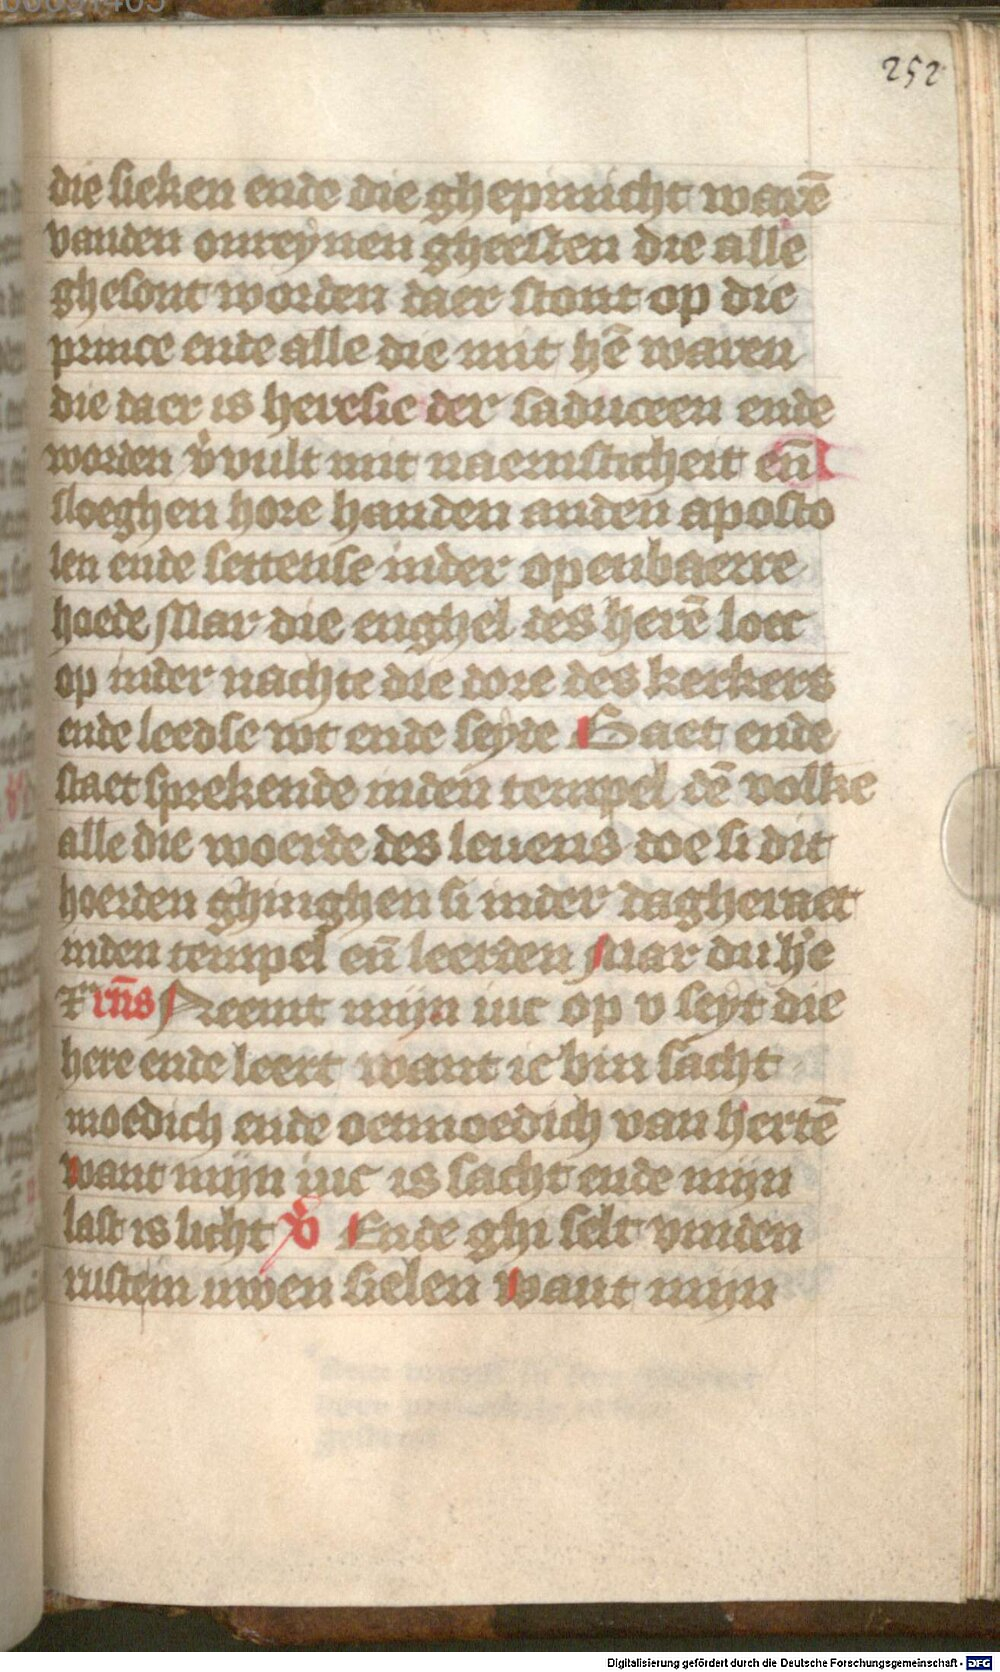 252
die sieken ende die ghepinicht warē
vanden onreynen gheesten die alle
ghesont worden daer stont op die
prince ende alle die mit hē waren
die daer is heresie der saduceen ende
worden v̓vult mit naernsticheit en̄
sloeghen hore handen anden aposto
len ende settense inder openbaerre
hoede Mar die enghel des herē loec
op inder nachte die dore des kerkers
ende leedse wt ende seyde Gaet ende
staet sprekende inden tempel dē volke
alle die woerde des leuens doe si dit
hoerden ghinghen si inder dagheraet
inden tempel en̄ leerden Mar du h̓e
rn̄s Neemt mijn iuc op v seyt die
here ende leert want ic bin sacht
moedich ende oetmoedich van hertē
want mijn iuc is sacht ende mijn
last is licht v̓ Ende ghi selt vinden
rustein uwen sielen want mijn
Digitalisierung gefördert durch die Deutsche Forschungsgemeinschaft - DFG